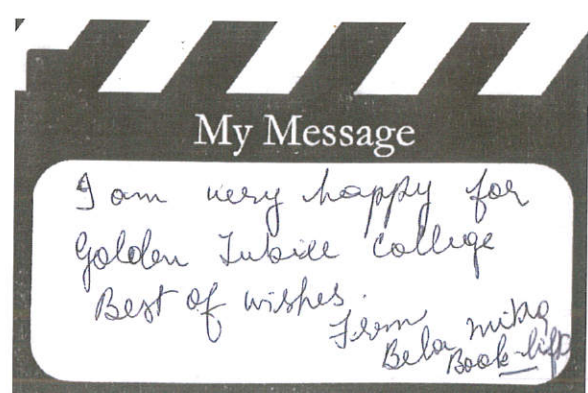 My Message
I am very happy for
Golden Jubilee College
Best of wishes.
From
Bela Mitra
Book-lift